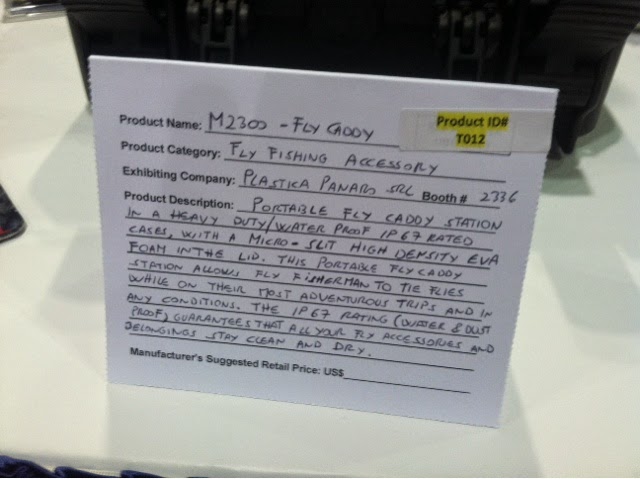 Product Name: M2300 - FLY CADDY
Product ID# T012
Product Category: FLY FISHING ACCESSORY
Exhibiting Company: PLASTICA PANARO SRL Booth # 2336
Product Description: PORTABLE FLY CADDY STATION
IN A HEAVY DUTY/WATER PROOF IP67 RATED
CASES, WITH A MICRO-SLIT HIGH DENSITY EVA
FOAM IN THE LID. THIS PORTABLE FLY CADDY
STATION ALLOWS FLY FISHERMAN TO TIE FLIES
WHILE ON THEIR MOST ADVENTUROUS TRIPS AND IN
ANY CONDITIONS. THE IP67 RATING (WATER & DUST
PROOF) GUARANTEES THAT ALL YOUR FLY ACCESSORIES AND
BELONGINGS STAY CLEAN AND DRY.
Manufacturer's Suggested Retail Price: US$